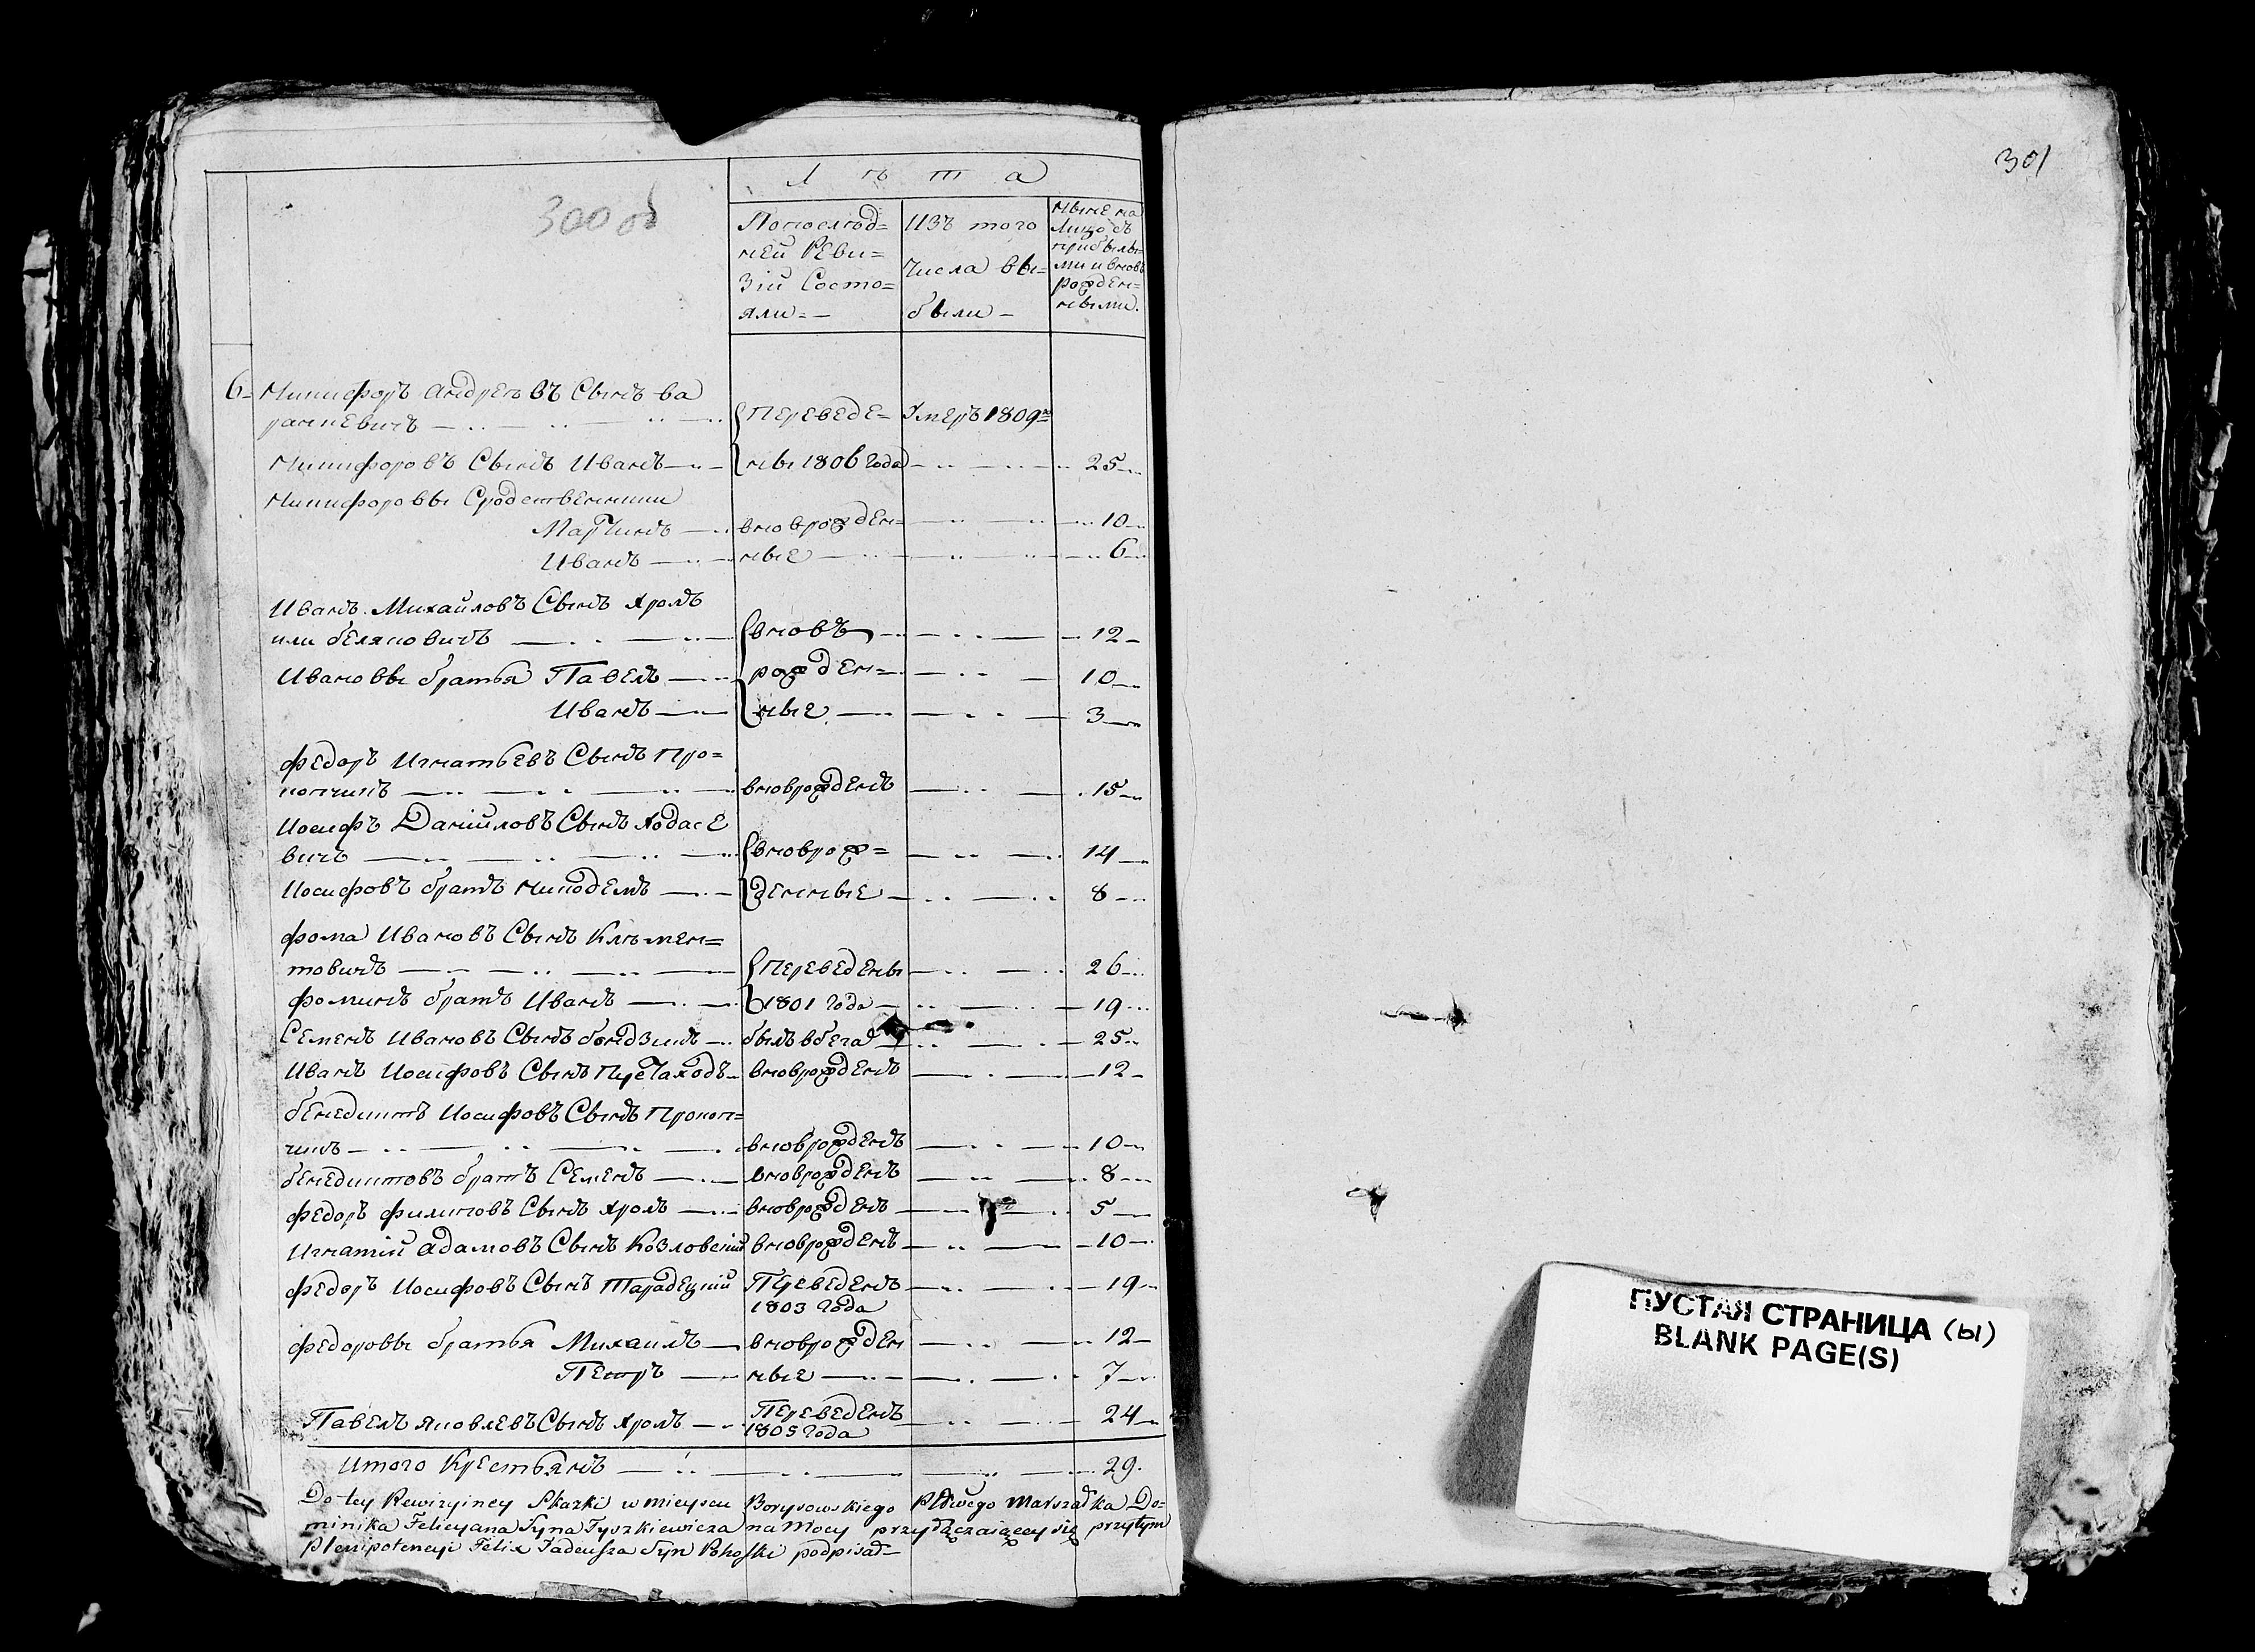 300 об
Лѣта
Попослѣд=
ней Реви=
зіи Состо=
яли=—
Изъ того
числа вы=
были—
Ныне на
Лицо съ
прибылы=
ми и вновь
рожден=
ными.
6- Никифоръ Андреевъ Сынъ Ба
ранкевичъ — {Переведе= Умеръ 1809го
Никифоровъ Сынъ Иванъ — ны 1806 года — 25
Никифоровы Сродственники
Марчинъ — вновррожден= — 10
Иванъ — ные — 6
Иванъ Михайловъ Сынъ Хромъ
или беляновичъ — {вновь — 12
Ивановы братья Павелъ — рожден= — 10
Иванъ — ные — 3
Федоръ Игнатьевъ Сынъ Про=
копчикъ — вноврожденъ — 15
Иосифъ Даніиловъ Сынъ Ходасе
вичъ — {вноврож= — 14
Иосифовъ братъ Никодемъ — денные — 8
Фома Ивановъ Сынъ Климен=
товичъ — {Переведены — 26
Фоминъ братъ Иванъ — 1801 года — 19
Семенъ Ивановъ Сынъ — былъ в бегах — 25
Иванъ Иосифовъ Сынъ Пустаходъ — вноврожденъ — 12
бенедиктъ Иосифовъ Сынъ Прокоп=
чикъ — вноврожденъ — 10
бенедиктовъ братъ Семенъ — вноврожденъ — 8
Федоръ Филиповъ Сынъ Хромъ — вноврожденъ — 5
Игнатій Адамовъ Сынъ Козловскій вноврожденъ — 10
Федоръ Иосифовъ Сынъ Тарадецкий Переведенъ — 19
1803 года
Федоровы братья Михаилъ — вноврожден — 12
Петръ — ные — 7
Павелъ Яковлевъ Сынъ Хромъ — Переведенъ — 24
1805 года
Итого Крестьянъ — 29.
Do tey Rewizyiney Skazki w mieyscu Borysowskiego Pttwego Marszałka Do=
minika Felicyana Syna Tyszkiewicza na mocy przyłączaiącey się przytym
Plenipotencyi Felix Tadeusza Syn Pohoski podpisał—
301
ПУСТАЯ СТРАНИЦА (Ы)
BLANK PAGE(S)